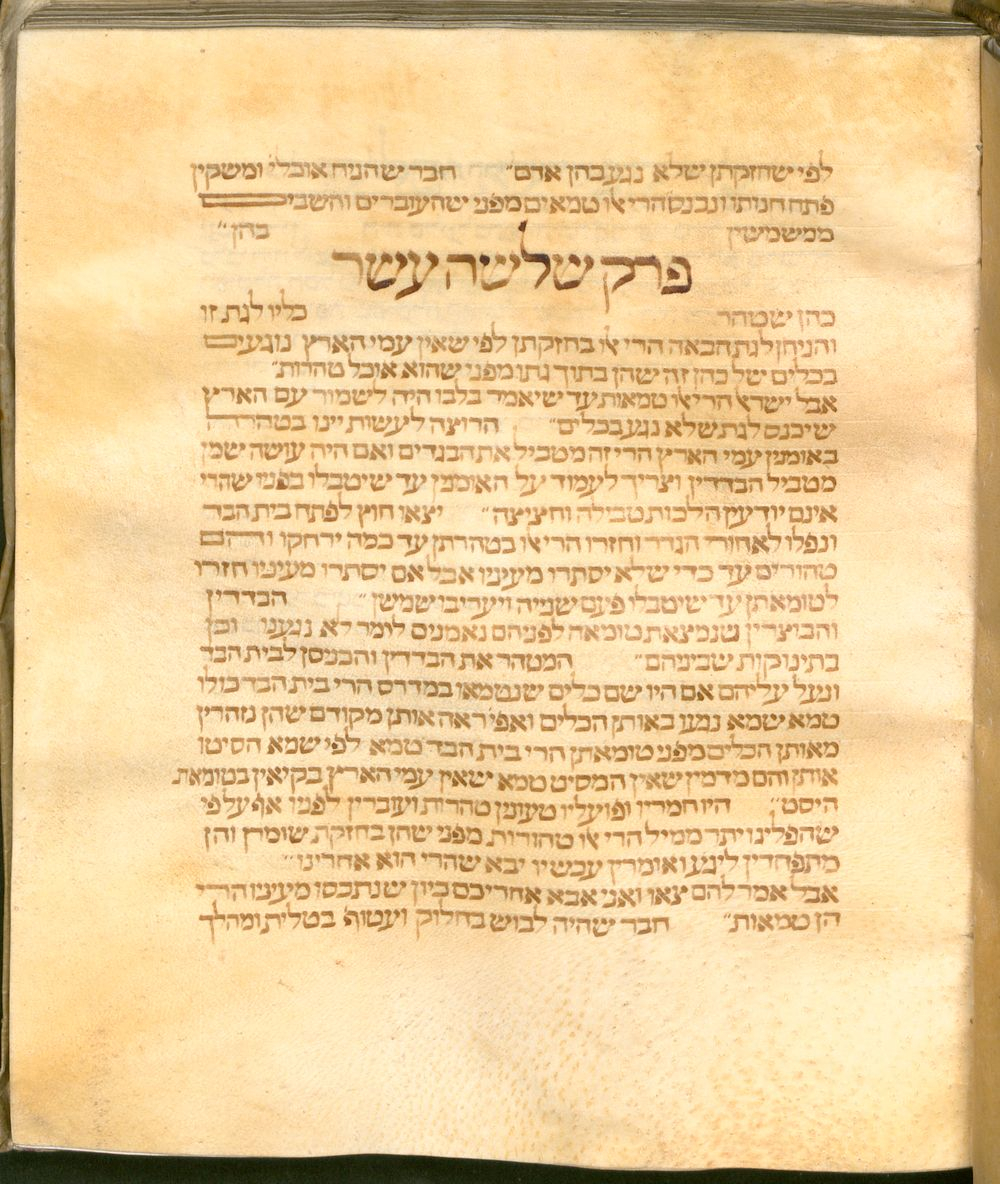 לפי שחזקתן שלא נגע בהן אדם״ חבר שהניח אוכלי׳ ומשקין
פתח חנותו ונכנס הרי אלו טמאים מפני שהעוברים והשבים
ממשמשין בהן״
פרק שלשה עשר
כהן שטהר כליו לגת זו
והניחן לגת הבאה הרי אלו בחזקתן לפי שאין עמי הארץ נוגעים
בכלים של כהן זה שהן בתוך גתו מפני שהוא אוכל טהרות״
אבל ישראל הרי אלו טמאות עד שיאמר בלבו היה לשמור עם הארץ
שיכנס לגת שלא נגע בכלים״ הרוצה לעשות יינו בטהרה
באומנין עמי הארץ הרי זה מטביל את הבגדים ואם היה עושה שמן
מטביל הבדדין וצריך לעמוד על האומנין עד שיטבלו בפניו שהרי
אינם יודעין הלכות טבילה וחציצה״ יצאו חוץ לפתח בית הבד
ונפלו לאחורי הגדר וחזרו הרי אלו בטהרתן עד כמה ירחקו ויהיו
טהורים עד כדי שלא יסתרו מעיניו אבל אם יסתרו מעיניו חזרו
לטומאתן עד שיטבלו פעם שנייה ויעריבו שמשן״ הבדדין
והבוצרין שנמצאת טומאה לפניהם נאמנים לומר לא נגענו וכן
בתינוקות שביניהם״ המטהר את הבדדין והכניסן לבית הבד
ונעל עליהם אם היו שם כלים שנטמאו במדרס הרי בית הבד כולו
טמא שמא נגעו באותן הכלים ואפי׳ ראה אותן מקודם שהן נזהרין
מאותן הכלים מפני טומאתן הרי בית הבד טמא לפי שמא הסיטו
אותן והם מדמין שאין המסיט טמא שאין עמי הארץ בקיאין בטומאת
היסט״ היו חמריו ופועליו טעונין טהרות ועוברין לפניו אף על פי
שהפליגו יתר ממיל הרי אלו טהורות מפני שהן בחזקת שומרין והן
מתפחדין ליגע ואומרין עכשיו יבא שהרי הוא אחרינו״
אבל אמר להם צאו ואני אבא אחריכם כיון שנתכסו מעיניו הרי
הן טמאות״ חבר שהיה לבוש בחלוק ועטוף בטלית ומהלך